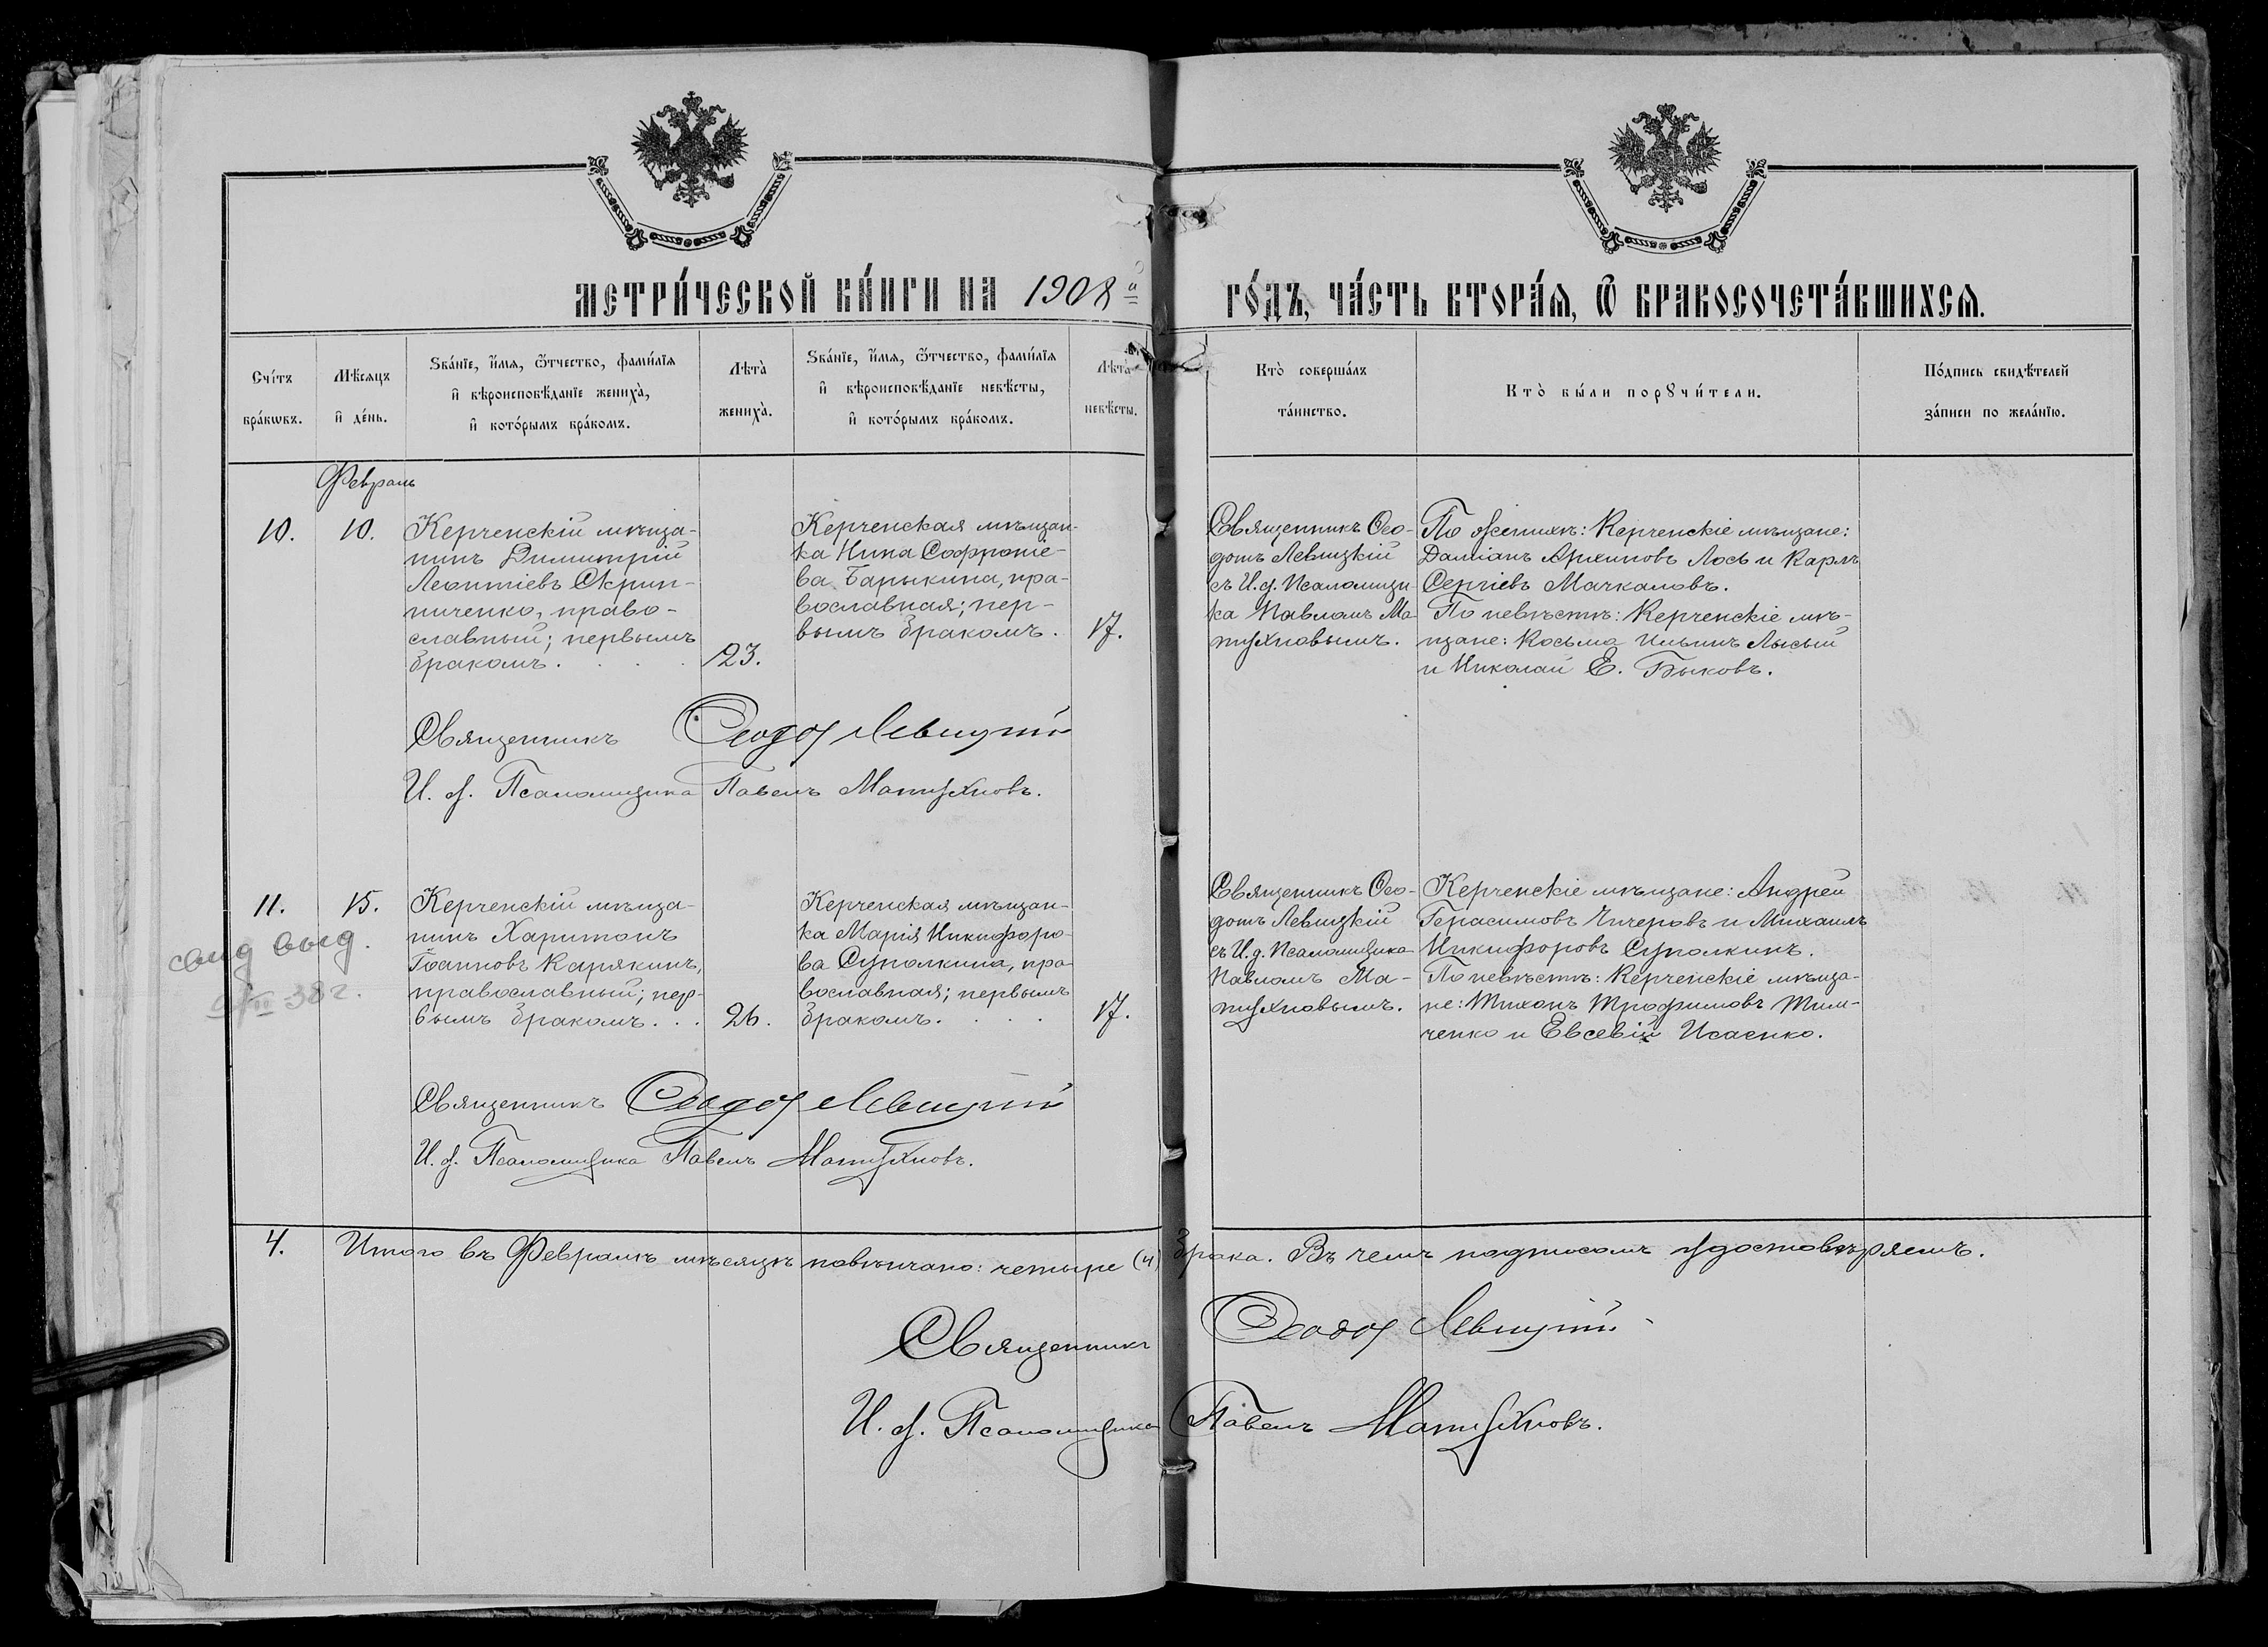 МЕТРИ́ЧЕСКОЙ КНИ́ГИ НА 1908й ГО́ДЪ, ЧА́СТЬ ВТОРА́Я, Ѿ БРАКОСОЧЕТА́ВШИХСЯ.
Сче́тъ
бра́кѡвъ.
Мѣ́сяцъ
и҆ де́нь.
Ѕва́нїе, и҆́мя, ѻ҆́тчество, фами́лїя
и҆ вѣроисповѣ́данїе жениха̀,
и҆ кото́рымъ бра́комъ.
Лѣта̀
жениха̀.
Ѕва́нїе, и҆́мя, ѻ҆́тчество, фами́лїя
и҆ вѣроисповѣ́данїе невѣ́сты,
и҆ кото́рымъ бра́комъ.
Лѣта̀
невѣ́сты.
Кто̀ соверша́лъ
та́инство.
Кто̀ бы́ли порꙋчи́тели.
По́дпись свидѣ́телей
за́писи по жела́нїю.
Февраль
10.
10.
Керченскій мѣща-
нинъ Димитрій
Леонтіевъ Скрип-
ниченко, право-
славный; первымъ
бракомъ.
23.
Керченская мѣщан-
ка Нина Софроніе-
ва Барыкина, пра-
вославная; пер-
вымъ бракомъ.
17.
Священникъ Ѳео-
дотъ Левицкій
съ И.д. Псаломщи
ка Павломъ Ма
тухновымъ.
По женихѣ: Керченскіе мѣщане:
Даміанъ Архиповъ Лось и Карпъ
Сергіевъ Мачкаловъ.
По невѣстѣ: Керченскіе мѣ-
щане: Косьма Ильинъ Лысый
и Николай Е. Быковъ.
Священникъ Ѳеодотъ Левицкій
И. д. Псаломщика Павелъ Матухновъ.
11.
15.
Керченскій мѣща-
нинъ Харитонъ
Іоанновъ Карякинъ,
православный; пер-
вымъ бракомъ...
26.
Керченская мѣщан-
ка Марія Никифоро-
ва Суполкина, пра-
вославная; первымъ
бракомъ.
17.
Священникъ Ѳео-
дотъ Левицкій
съ И.д. Псаломщика
Павломъ Ма-
тухновымъ.
Керченскіе мѣщане: Андрей
Герасимовъ Чичеровъ и Михаилъ
Никифоровъ Суполкинъ.
По невѣстѣ: Керченскіе мѣща-
не: Тихонъ Трофимовъ Тим-
ченко и Евсевій Исаенко.
свид выд.
38 г.
Священникъ Ѳеодотъ Левицкій
И. д. Псаломщика Павелъ Матухновъ.
4. Итого въ Февралѣ мѣсяцѣ повѣнчано: четыре (4) брака. Въ чемъ подписомъ удостовѣряемъ.
Священникъ Ѳеодотъ Левицкій
И. д. Псаломщика Павелъ Матухновъ.